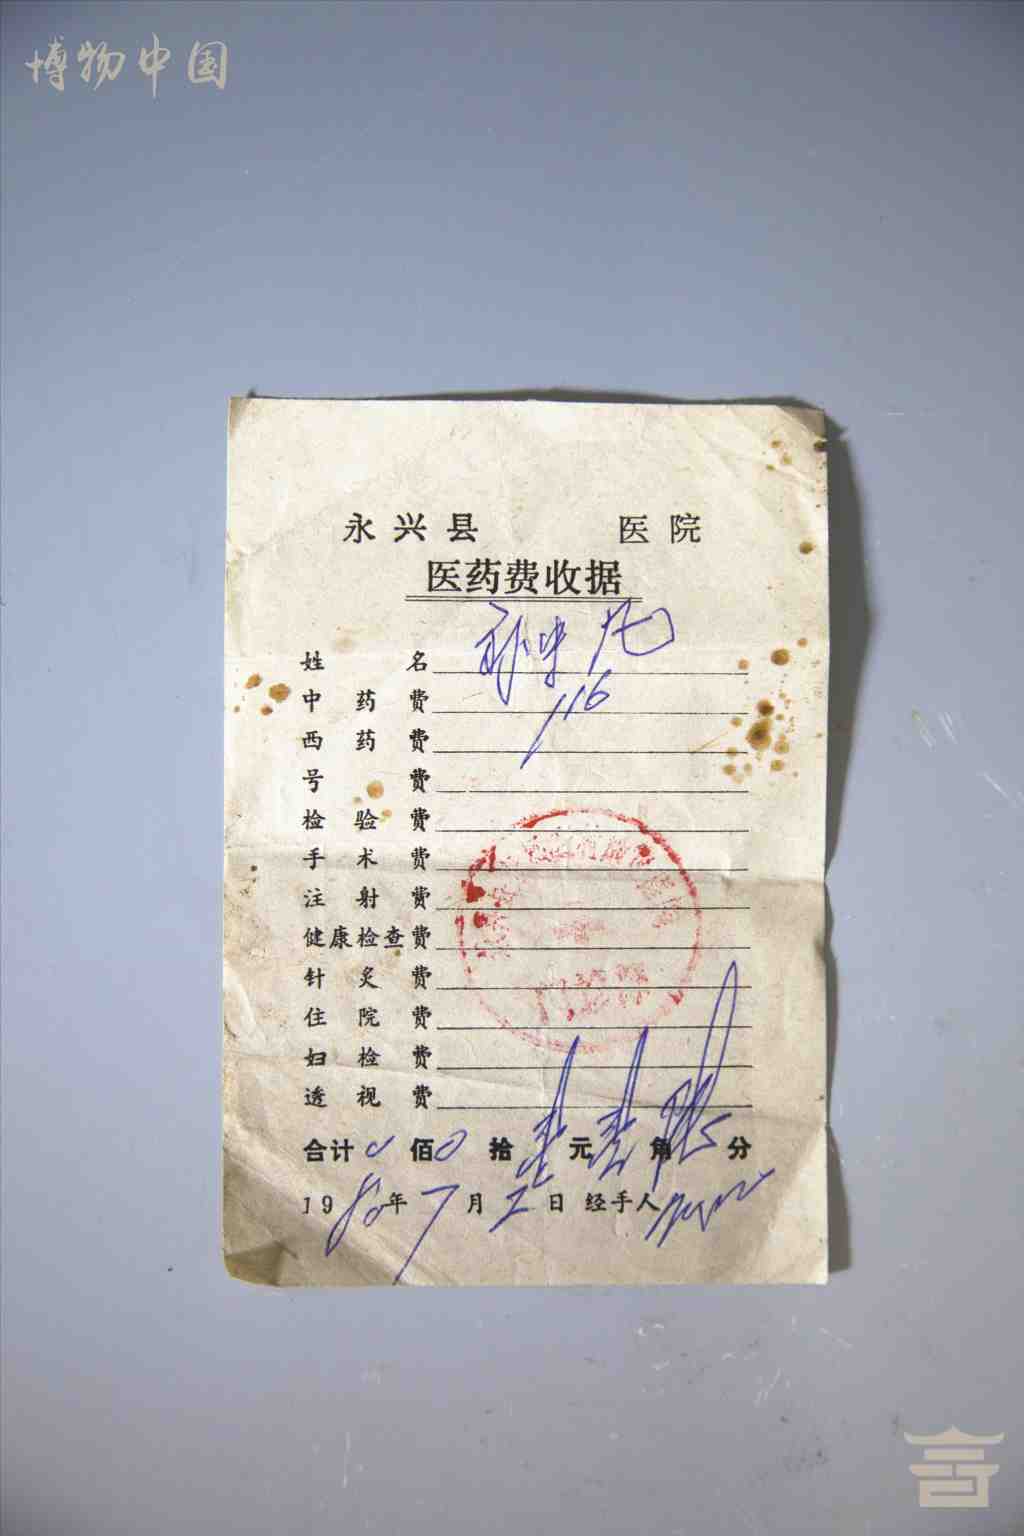 博物中国
永兴县 医院
医药费收据
姓名
中药费 116
西药费
号费
检验费
手术费
注射费
健康检查费
针灸费
住院费
妇检费
透视费
门诊部
合计 0 佰 0 拾 壹 元 壹 角 陆 分
1980年7月2日 经手人